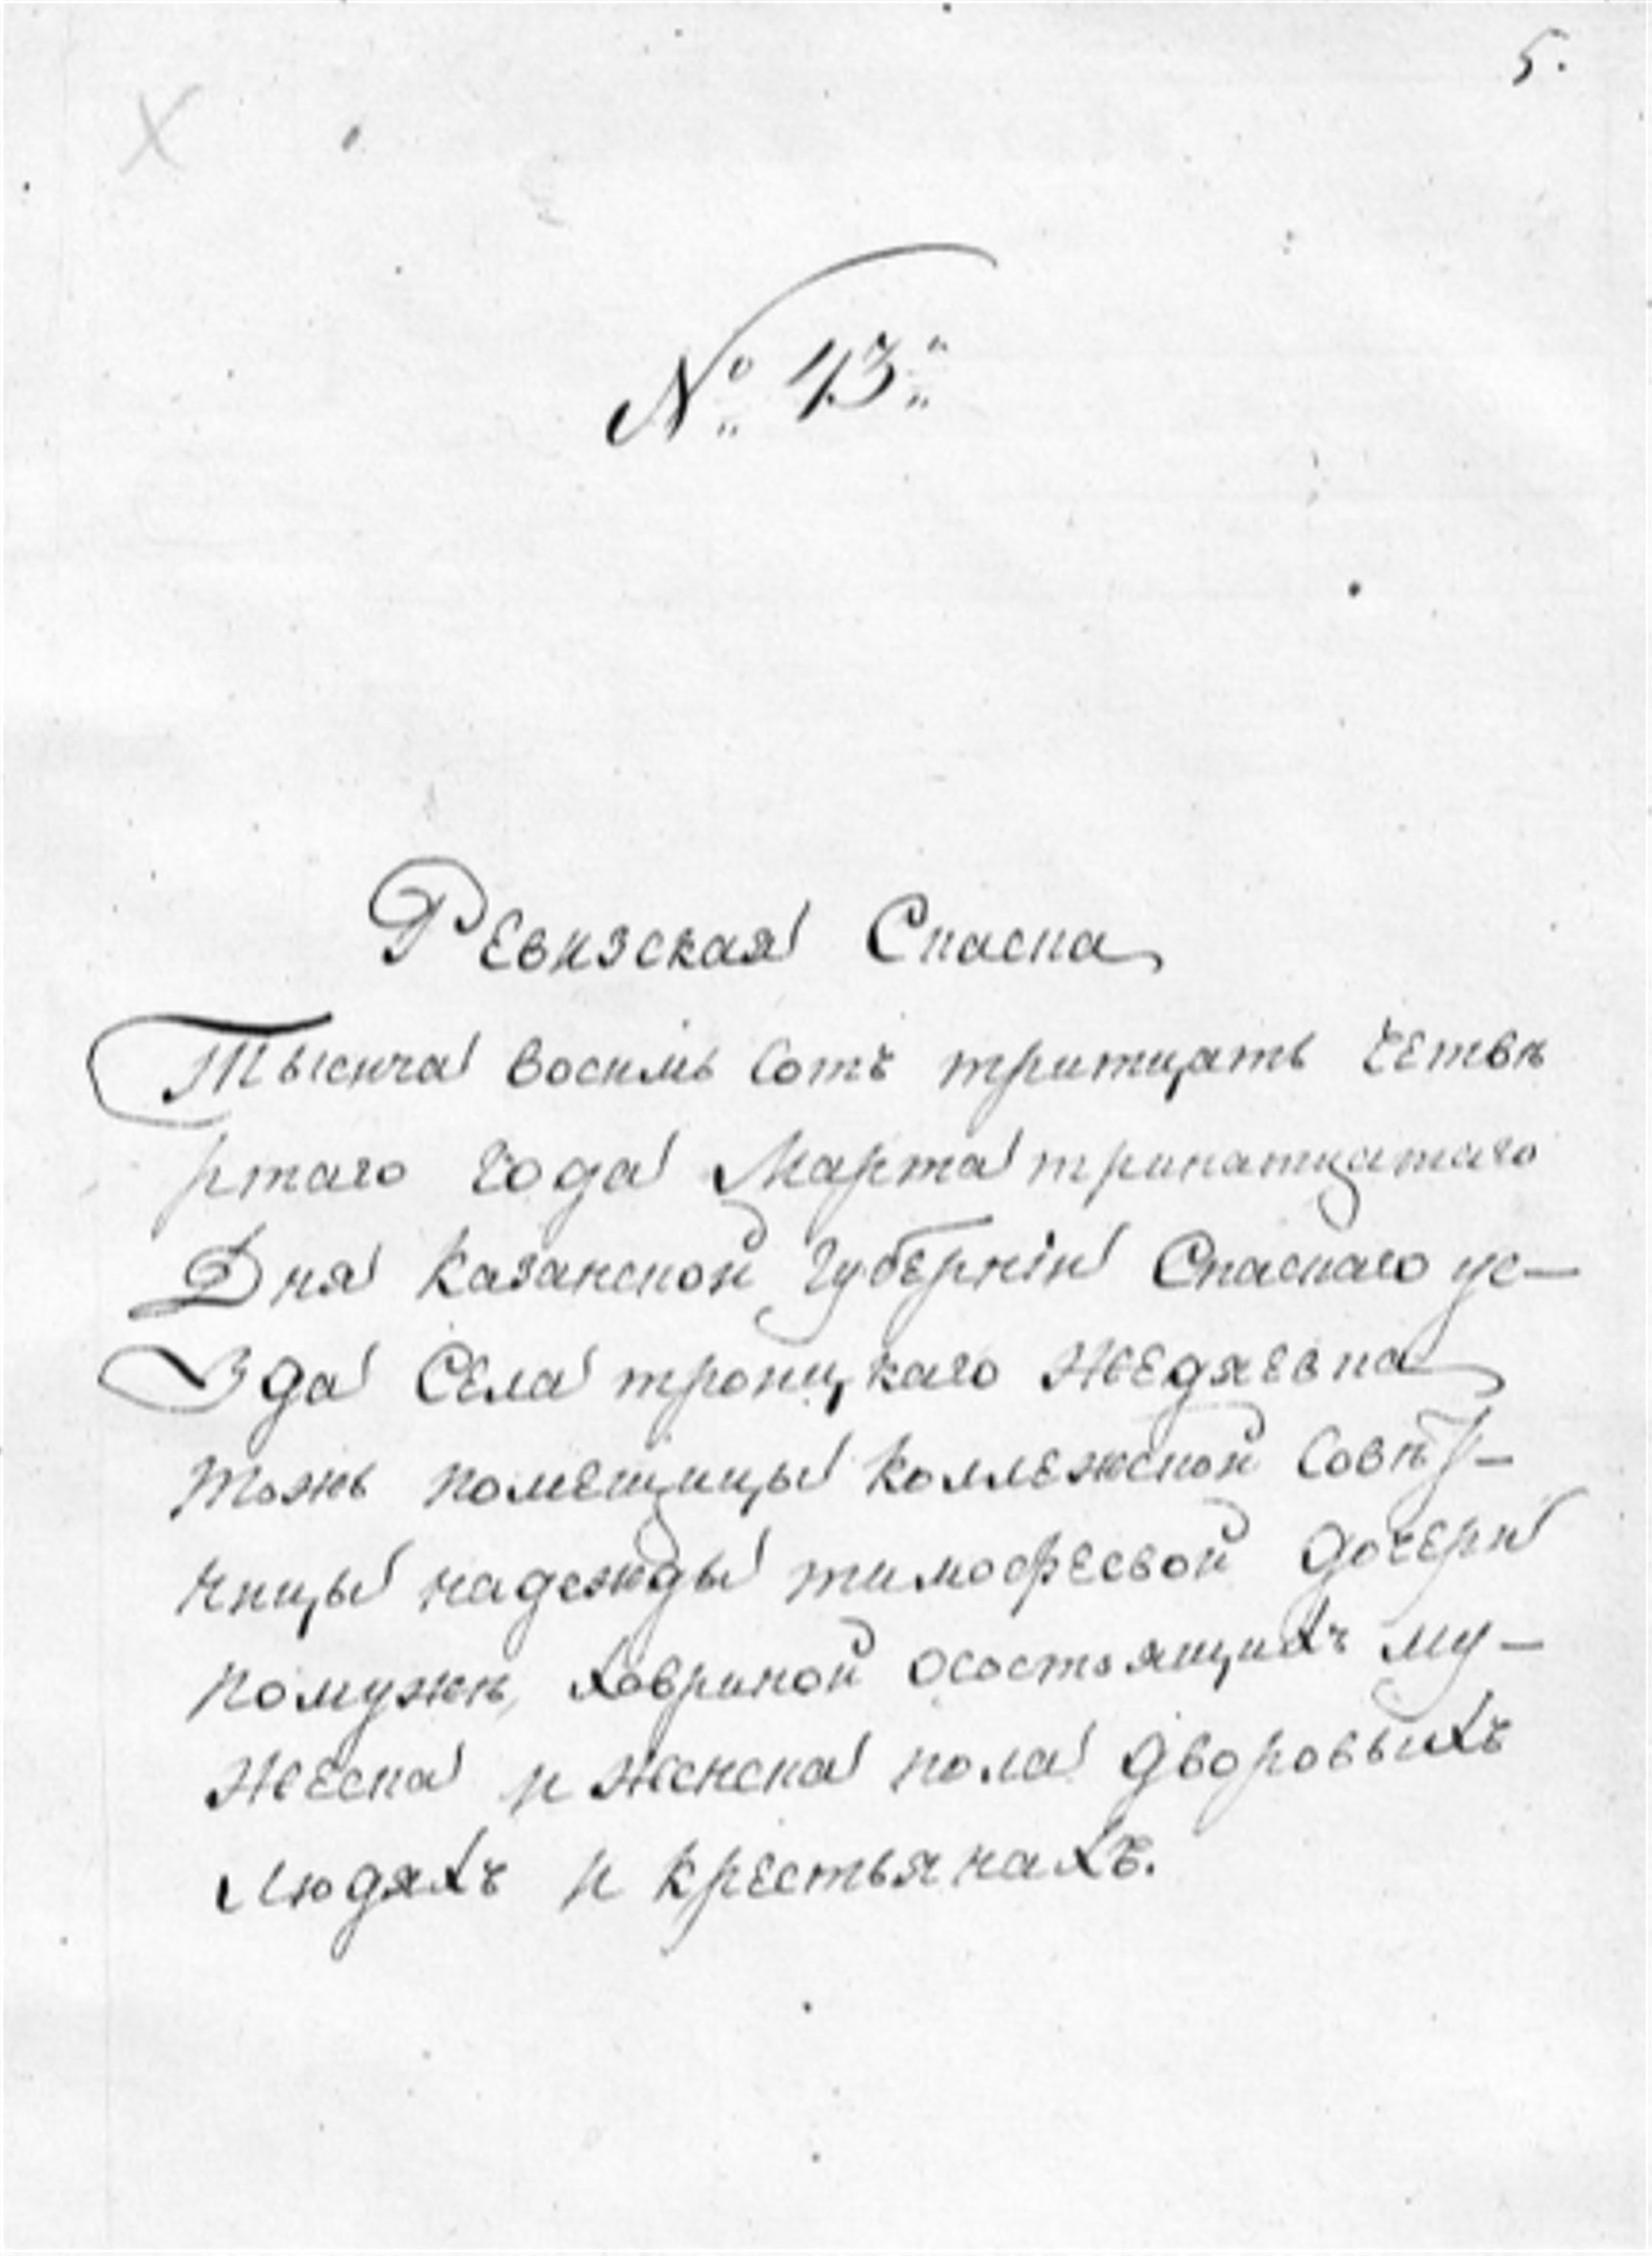 5.
№ 43
Ревизская Сказка
Тысича восимь сотъ тритцать четвѣ
ртаго года марта тринатцатаго
Дня казанской губерніи Спаскаго уе-
зда Села троицкаго жедяевка
тожъ помещицы коллежской совѣт-
ницы надежды тимофеевой дочери
помужѣ, ховриной осостоящихъ му-
жеска и женска пола дворовыхъ
людяхъ и крестьянахъ.